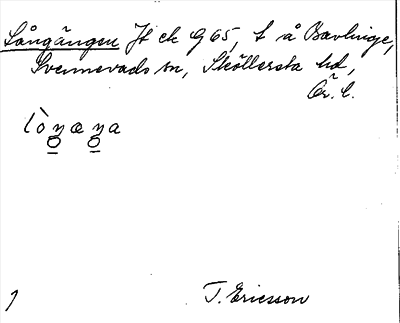 Långängen Jt ek G 65, t å Bavlinge,
Svennevads sn, Sköllersta hd,
Ör. l.
lòŋæŋa
1
T. Ericsson